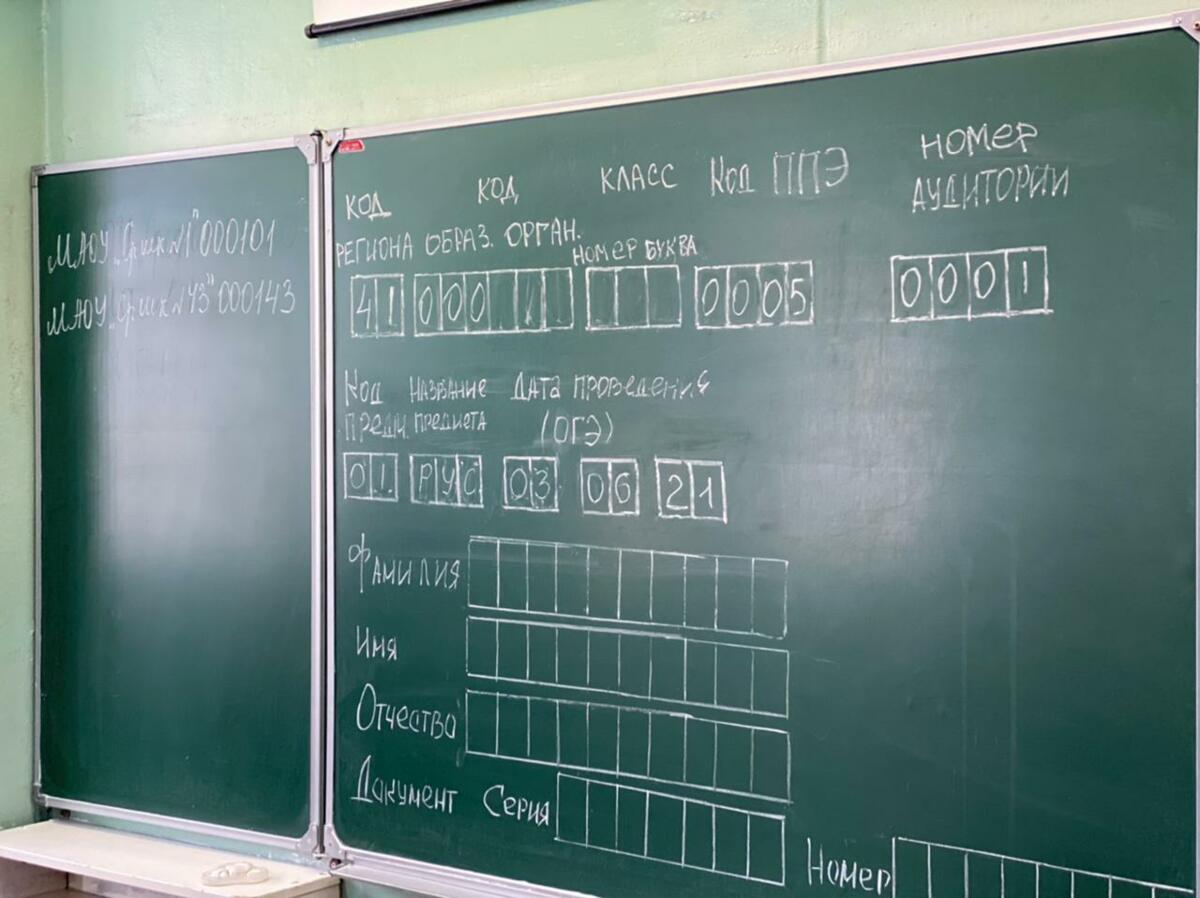 МАОУ „Ср. шк №1" 000101
МАОУ „Ср. шк №43" 000143
КОД РЕГИОНА
КОД ОБРАЗ. ОРГАН.
КЛАСС
НОМЕР БУКВА
Код ППЭ
НОМЕР
АУДИТОРИИ
41 000 1 0005 0001
Код предм.
НАЗВАНИЕ ПРЕДМЕТА
ДАТА ПРОВЕДЕНИЯ
(ОГЭ)
01 РУС 03 06 21
ФАМИЛИЯ
Имя
Отчество
Документ Серия
Номер